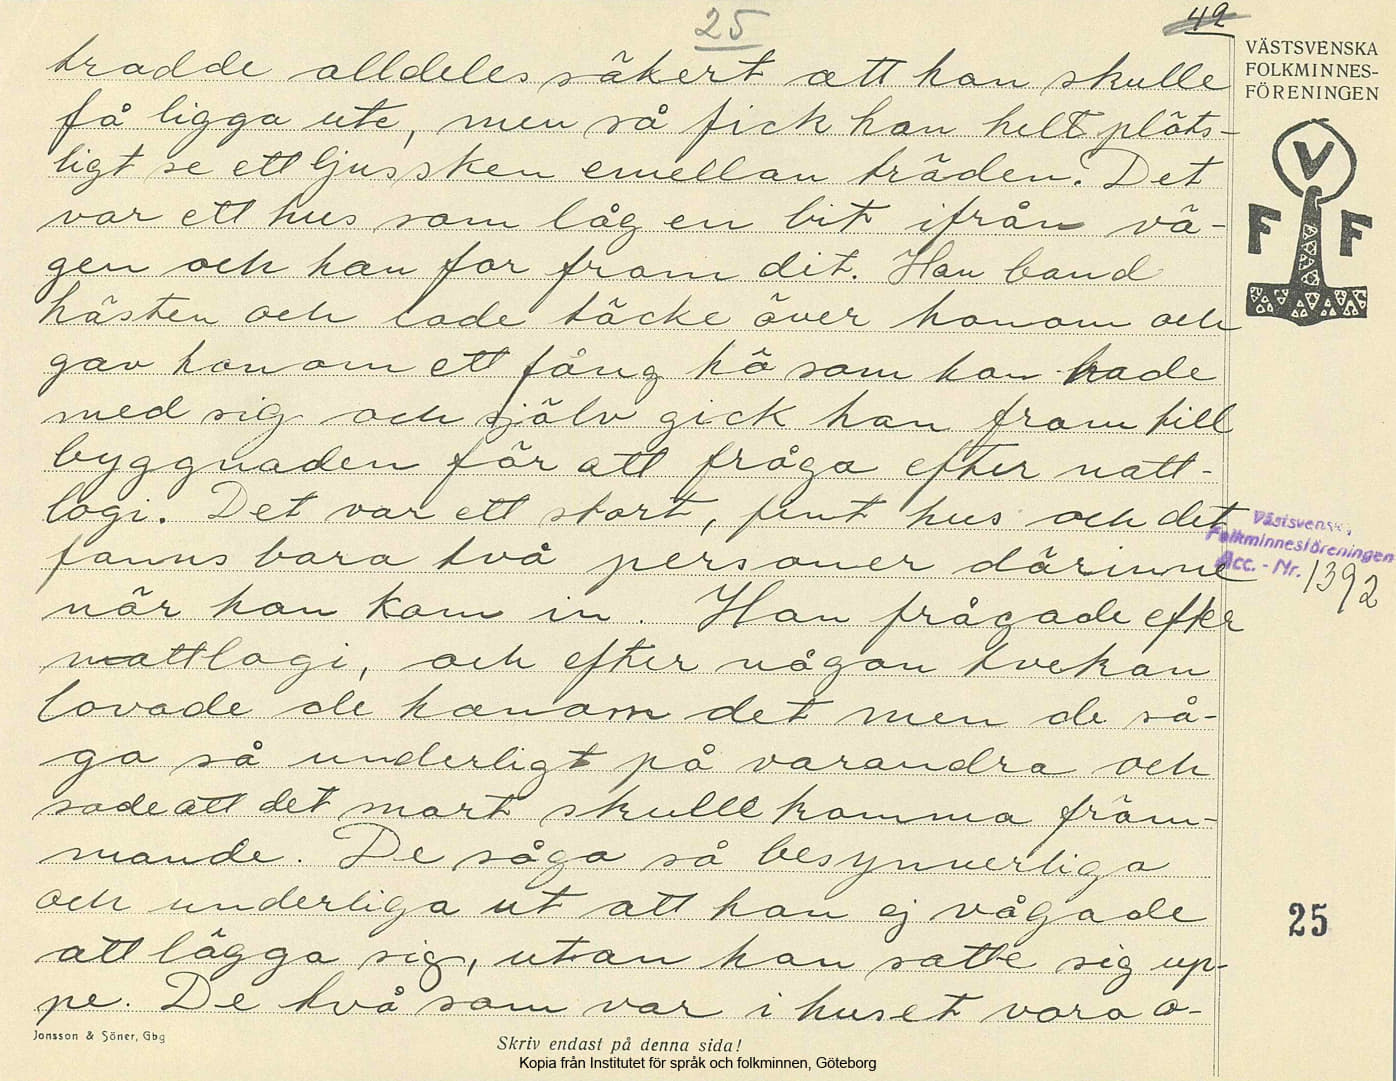 25
42
VÄSTSVENSKA
FOLKMINNES-
FÖRENINGEN
V
F F
trodde alldeles säkert att han skulle
få ligga ute, men så fick han helt plöts-
ligt se ett ljussken emellan träden. Det
var ett hus som låg en bit ifrån vä-
gen och han for fram dit. Han band
hästen och lade täcke över honom och
gav honom ett fång hö som han hade
med sig och själv gick han fram till
byggnaden för att fråga efter natt-
logi. Det var ett stort, fint hus och det
fanns bara två personer därinne
när han kom in. Han frågade efter
nattlogi, och efter någon tvekan
lovade de honom det men de så-
go så underligt på varandra och
sade att det snart skulle komma främ-
mande. De sågo så besynnerliga
och underliga ut att han ej vågade
att lägga sig, utan han satte sig up-
pe. De två som var i huset voro o-
Västsvenska
Folkminnesföreningen
Acc. - Nr. 1392
25
Jonsson & Söner, Gbg
Skriv endast på denna sida!
Kopia från Institutet för språk och folkminnen, Göteborg